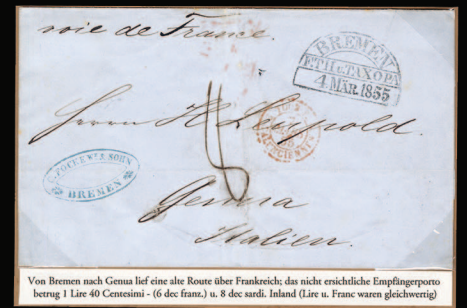 voie de France.
BREMEN
4 MÄR. 1855
Herrn H Leupold.
& SOHN
BREMEN
Genua
Italien.
Von Bremen nach Genua lief eine alte Route über Frankreich; das nicht ersichtliche Empfängerporto
betrug 1 Lire 40 Centesimi - (6 dec franz.) u. 8 dec sardi. Inland (Lire u. Franc waren gleichwertig)